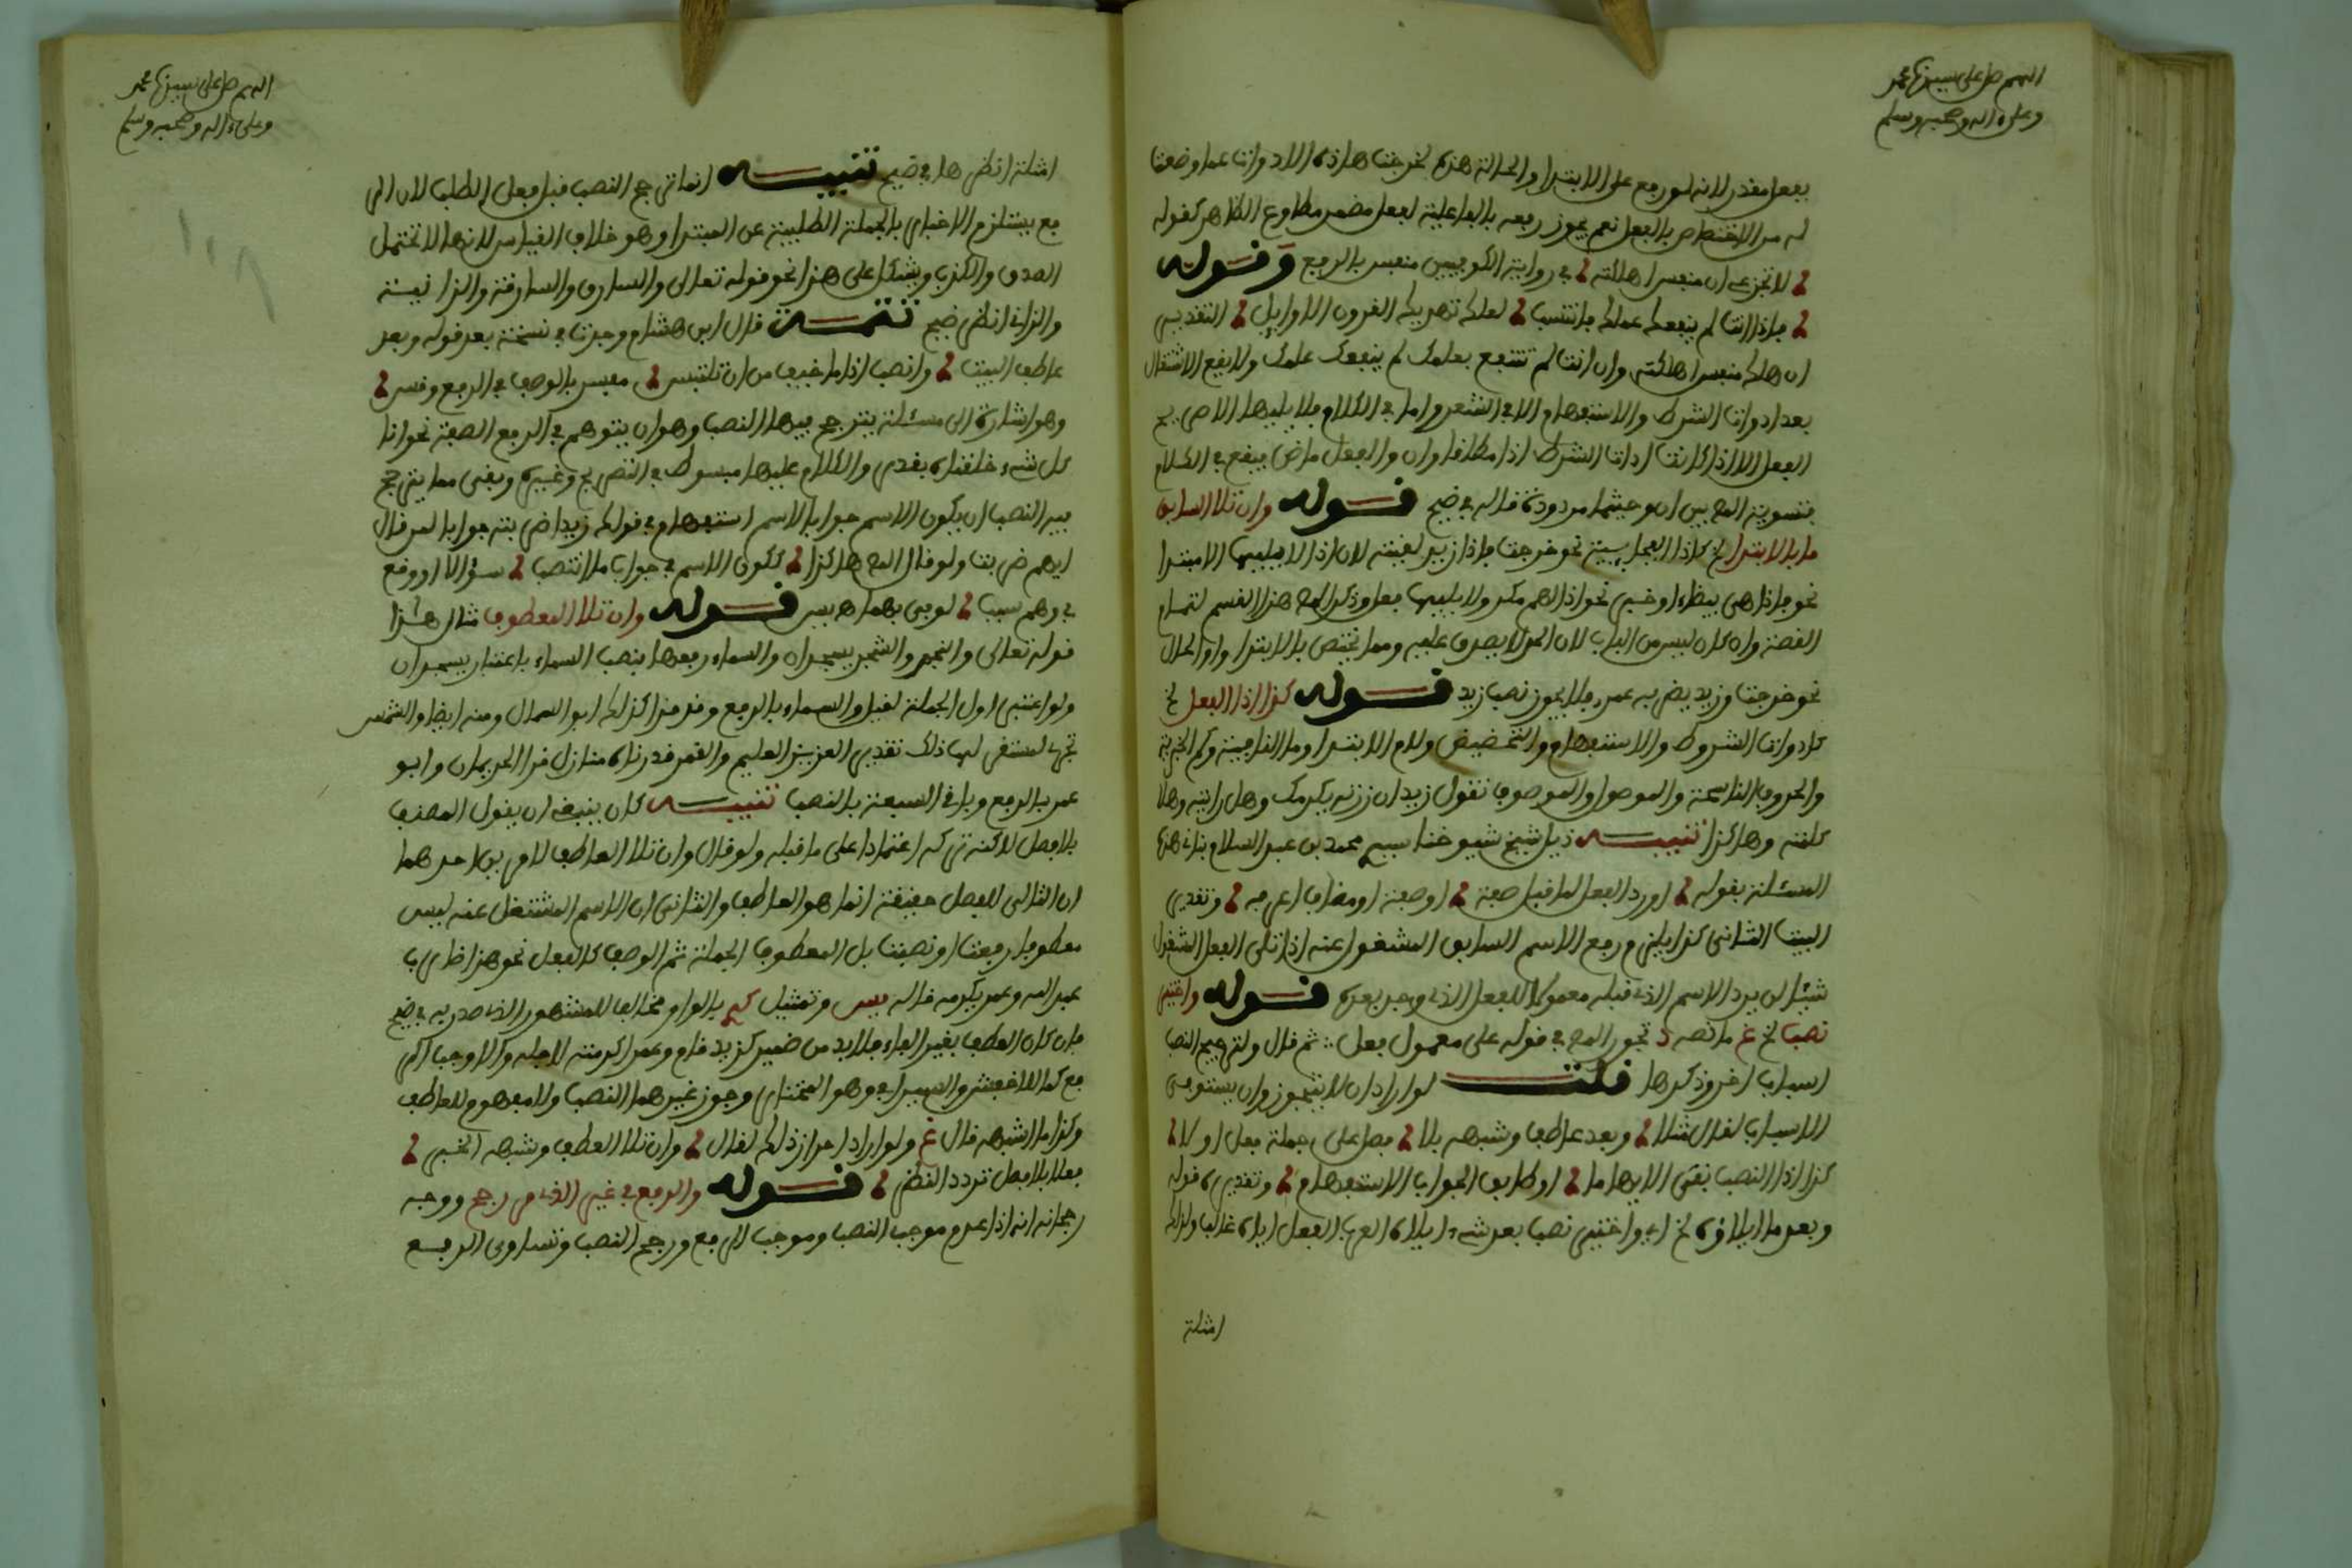 اللهم صل على سيدنا محمد
وعلى ءاله وصحبه وسلم
بفعل مقدر لانه لو رفع على الابتداء والحالة هذه لخرجت هاذه الادوات عما وضعت
له من الاختصاص بالفعل نعم يجوز رفعه بالفاعلية لفعل مضمر مطاوع الظاهر كقوله
لا تجزعي ان منفس اهلكته في رواية الكوفيين منفس بالرفع وقوله
فإذا انت لم ينفعك علمك فانتسب لعلك تهديك القرون الاوايل التقدير
ان هلك منفس اهلكته وان انت لم تنتفع بعلمك لم ينفعك علمك ولا يقع الاشتغال
بعد ادوات الشرط والاستفهام الا في الشعر واما في الكلام فلا يليها الا صريح
الفعل الا اذا كانت ادات الشرط اذا مطلقا وان والفعل ماض فيقع في الكلام
فتسوية المص بين ان وحيثما مردودة قاله في ضيح قوله وان تلا السابق
ما بالابتدا الخ كاذا الفجاىية نحو خرجت فإذا زيد لقيته لان اذا لا يليها الا مبتدا
نحو فإذا هي بيضاء او خبر نحو اذا لهم مكر ولا يليها فعل وذكر المص هذا القسم لتمام
القصة وان كان ليس من الباب لان الحد لا يصدق عليه ومما يختص بالابتدا واو الحال
نحو خرجت وزيد يضربه عمرو فلا يجوز نصب زيد قوله كذا اذا الفعل الخ
كادوات الشروط والاستفهام والتحضيض ولام الابتدا وما النافية وكم الخبرية
والحروف الناسخة والموصول والموصوف تقول زيد ان زرته يكرمك وهل رايته وهلا
كلمته وهاكذا تنبيه ذيل شيخ شيوخنا سيدي محمد بن عبد السلام بناني هذه
المسئلة بقوله او ورد الفعل لما قبل صفة او صفة او مضاف اعرفه وتقدير
البيت الثاني كذا يلزم رفع الاسم السابق المشغول عنه اذا تلى الفعل المشغول
شيئا لن يرد الاسم الذي قبله معمولا للفعل الذي وجد بعده قوله واختير
نصب الخ غ ما نصه تجوز المص في قوله على معمول فعل ثم قال ولترجيح النصب
اسباب اخر وذكرها قلت لو اراد ان لا يتجوز وان يستوفى
الاسباب لقال مثلا وبعد عاطف وشبهه بلا فصل على جملة فعل اولا
كذا اذا النصب نفى الايهاما او طابق الجواب الاستفهام وتقديره قوله
وبعد ما ايلاؤه الخ اي واختير نصب بعد شيء ايلاه العرب الفعل ايلاء غالبا ولذلك
امثلة
اللهم صل على سيدنا محمد
وعلى ءاله وصحبه وسلم
امثلة انظرها في ضيح تنبيه انما ترجح النصب قبل فعل الطلب لان الر
فع يستلزم الاخبار بالجملة الطلبية عن المبتدا وهو خلاف القياس لانها لا تحتمل
الصدق والكذب ويشكل على هذا نحو قوله تعالى والسارق والسارقة والزانية
والزاني انظر ضيح تتمة قال ابن هشام وجدت في نسخة بعد قوله وبعد
عاطف البيت وانصب اذا ما خيف من ان تلتبس مفسر بالوصف في الرفع وقس
وهو اشارة الى مسئلة يترجح فيها النصب وهو ان يتوهم في الرفع الصفة نحو انا
كل شيء خلقناه بقدر والكلام عليها مبسوط في التصريح وغيره وبقى مما يترجح
فيه النصب ان يكون الاسم جوابا لاسم استفهام في قولك زيدا ضربته جوابا لمن قال
ايهم ضربت ولو قال المص هاكذا ككون الاسم في جواب ما انتصب سؤالا او وقع
في وهم سبب لوفى بهما قاله يس قوله وان تلا المعطوف مثال هذا
قوله تعالى والنجم والشجر يسجدان والسماء رفعها بنصب السماء باعتبار يسجدان
ولو اعتبر اول الجملة لقيل والسماء بالرفع وقد قرا كذلك ابو السمال ومنه ايضا والشمس
تجري لمستقر لها ذلك تقدير العزيز العليم والقمر قدرناه منازل قرا الحرميان وابو
عمر بالرفع وباقي السبعة بالنصب تنبيه كان ينبغي ان يقول المصنف
بلا فصل لاكنه تركه اعتمادا على ما قبله ولو قال وان تلا العاطف لامرين احدهما
ان التالى للفصل حقيقة انما هو العاطف والثاني ان الاسم المشتغل عنه ليس
معطوفا رفعت او نصبت بل المعطوف الجملة ثم الوصف كالفعل نحو هذا ضارب
عبد الله وعمر يكرمه قاله يس وتمثيل كهم بالواو مخالف للمشهور الذي صدر به في ضيح
فإن كان العطف بغير الفاء فلابد من ضمير كزيد قام وعمر اكرمته لاجله والا وجب الر
فع كما للاخفش والسيرافي وهو المختار وجوز غيرهما النصب ولا مفهوم للعاطف
وكذا ما اشبهه قال غ ولو اراد احراز ذلك لقال وان تلا العطف وشبهه الخبر
فعلا بلا فصل تردد النظر قوله والرفع في غير الذي مر رجح ووجه
رجحانه انه اذا عدم موجب النصب وموجب الرفع ورجح النصب وتساوى الرفع